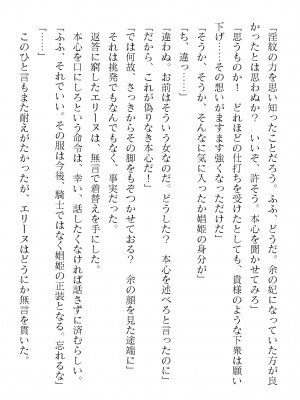 「淫紋の力を思い知ったことだろう。ふふ、どうだ。余の妃になっていた方が良
かったとは思わぬか？　いいぞ、許そう。本心を聞かせてみろ」
「思うものか！　どれほどの仕打ちを受けたとしても、貴様のような下衆は願い
下げ……その想いがますます強くなっただけだ」
「そうか、そうか、そんなに気に入ったか娼姫の身分が」
「ち、違っ……」
「違わぬ。お前はそういう女なのだ。どうした？　本心を述べろと言ったのに」
「だから、これが偽りなき本心だ！」
「では何故、さっきからその脚をもぞつかせておる？　余の顔を見た途端に」
それは挑発でもなんでもなく、事実だった。
返答に窮したエリーヌは、無言で着替えを手にした。
本心を口にしろという命令は、幸い、話したくなければ話さずに済むらしい。
「ふふ、それでいい。その服は今後、騎士ではなく娼姫の正装となる。忘れるな」
「……」
このひと言もまた耐えがたかったが、エリーヌはどうにか無言を貫いた。